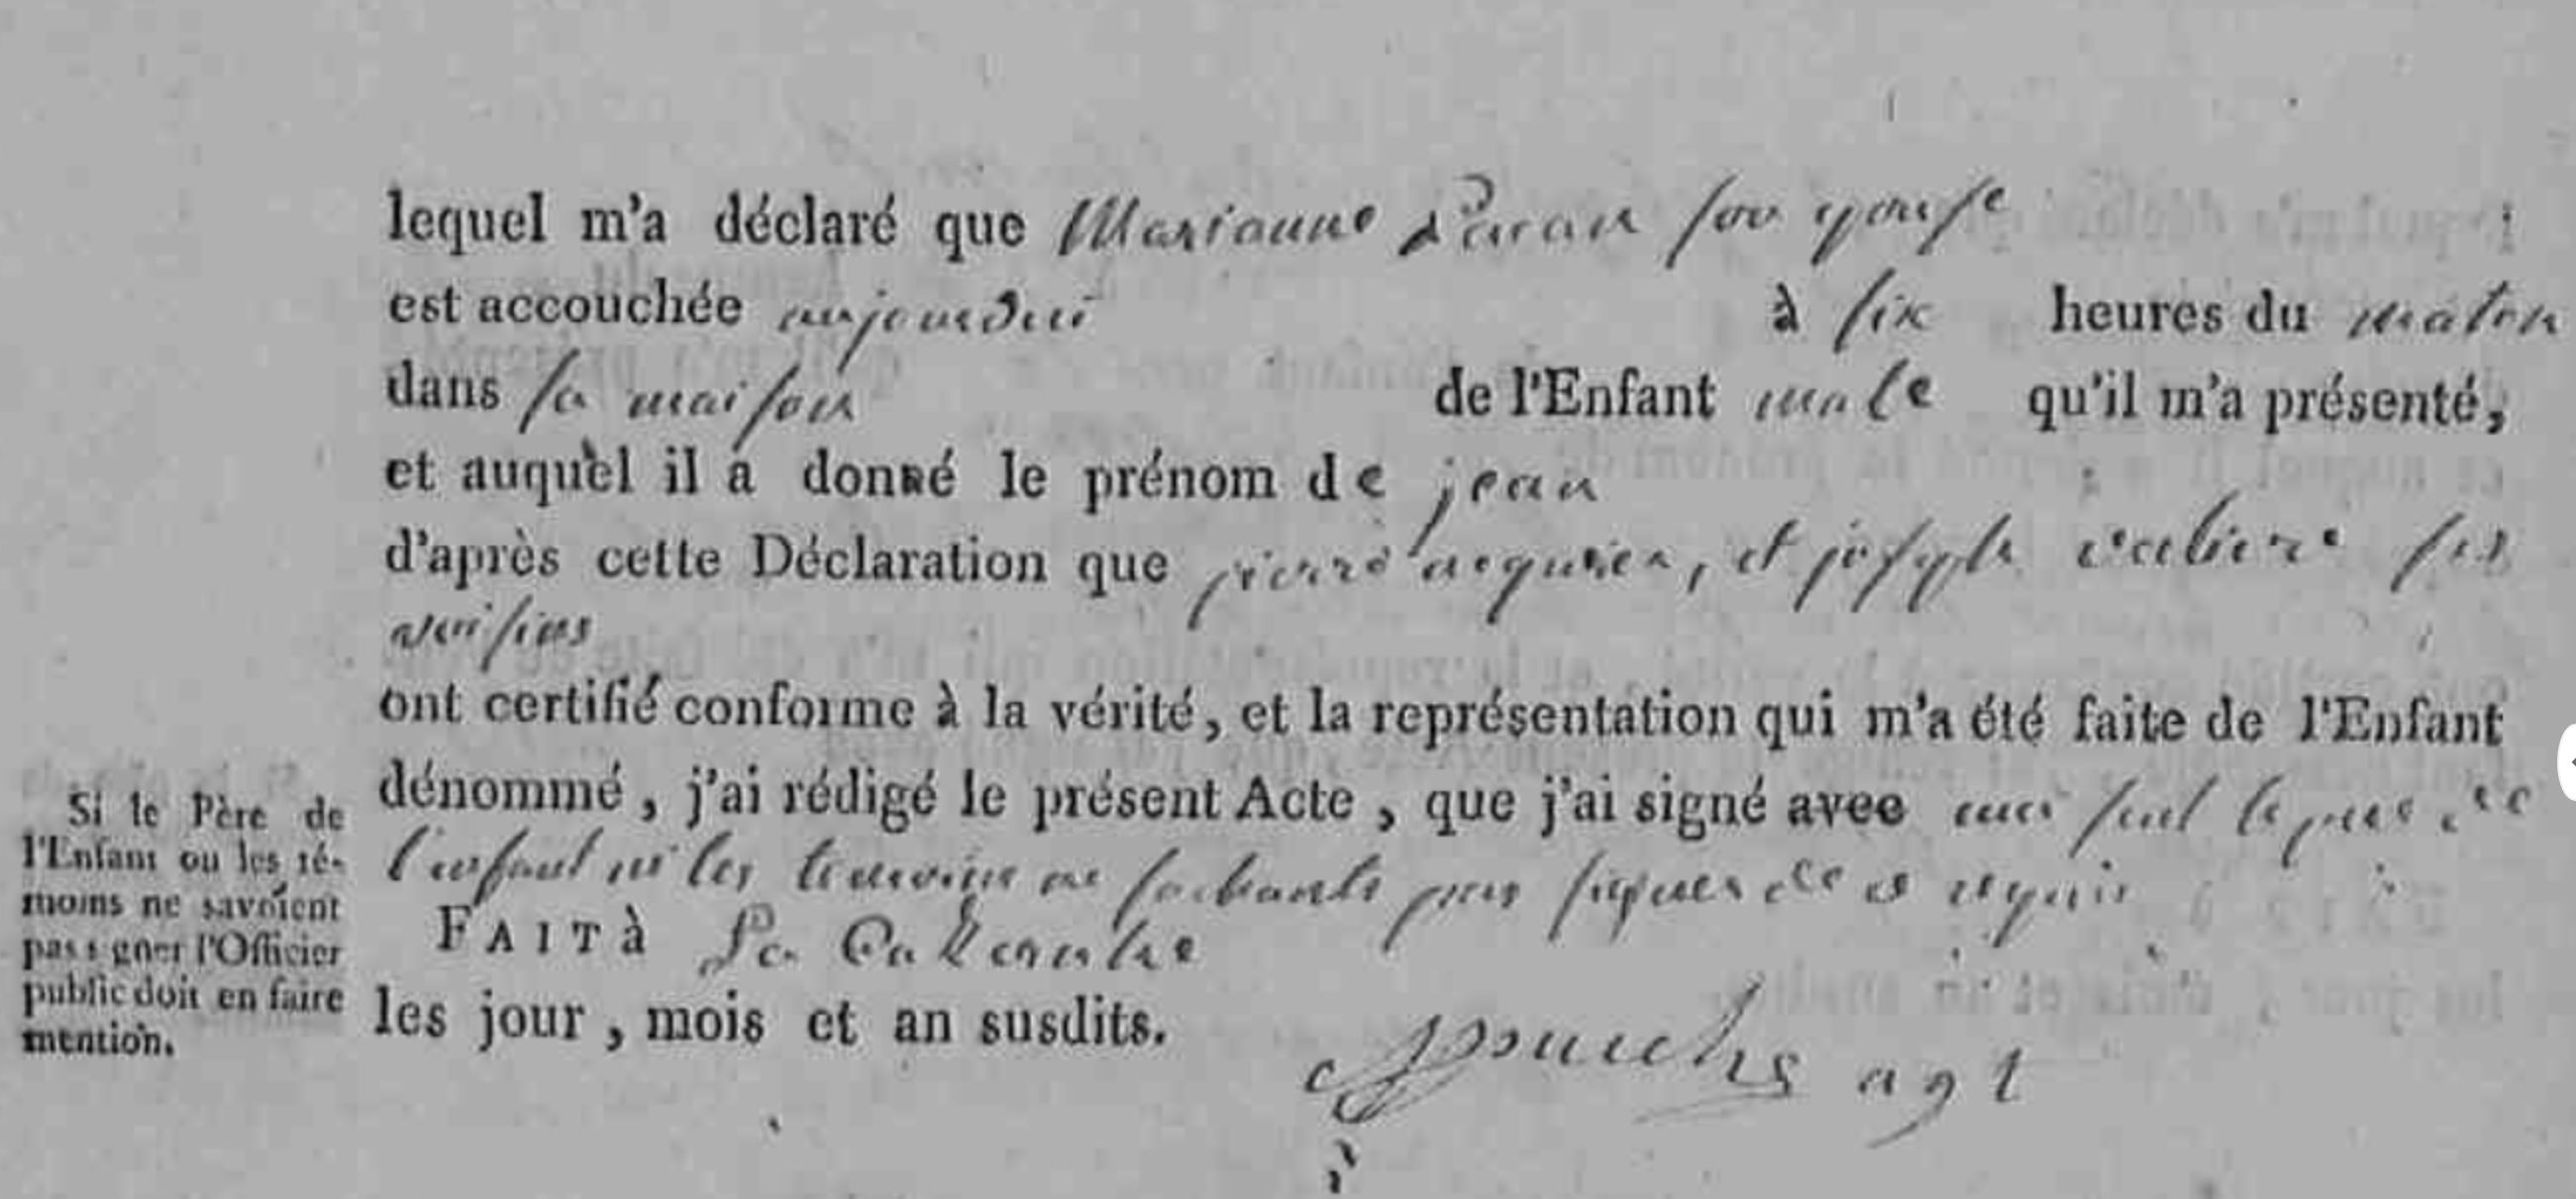 lequel m'a déclaré que Marianne son epouse
est accouchée aujourdui à six heures du matin
dans sa maison de l'Enfant male qu'il m'a présenté,
et auquel il a donné le prénom de jean
d'après cette Déclaration que pierre et joseph ses
voisins
ont certifié conforme à la vérité, et la représentation qui m'a été faite de l'Enfant
dénommé, j'ai rédigé le présent Acte, que j'ai signé avec seul le pere de
l'enfant ni les temoins ne sachants pas signer de ce requis
FAIT à La
les jour, mois et an susdits.
agt
Si le Père de
l'Enfant ou les té-
moins ne savoient
pas signer l'Officier
public doit en faire
mention.